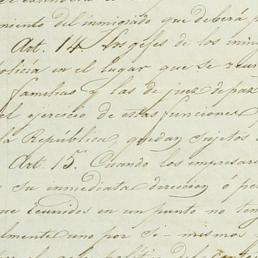 miento del inmigrado que deberá
Art. 14. Los gefes de los
policía en el lugar que se
familias y las de juez de paz
el ejercicio de estas funciones
la República, quedan sujetos
Art. 15. Cuando los empresar
su inmediata direccion ó
ne reunidos en un punto no
lmente uno por si mismos